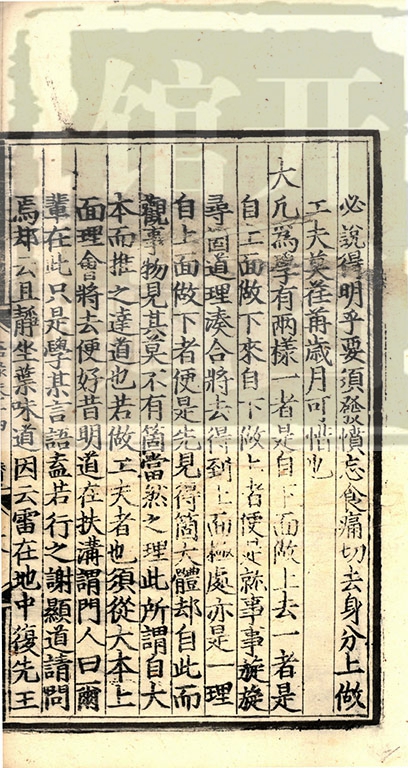 必說得明乎要須發憤忘食痛切去身分上做
工夫莫荏苒歲月可惜也
大凡為學有兩樣一者是自下面做上去一者是
自上面做下來自下做上者便是就事事旋旋
尋箇道理湊合將去得到上面極處亦是一理
自上面做下者便是先見得箇大體却自此而
觀事物見其莫不有箇當然之理此所謂自大
本而推之達道也若做工夫者也須從大本上
面理會將去便好昔明道在扶溝謂門人曰爾
輩在此只是學某言語盍若行之謝顯道請問
焉却云且靜坐葉味道因云雷在地中復先王